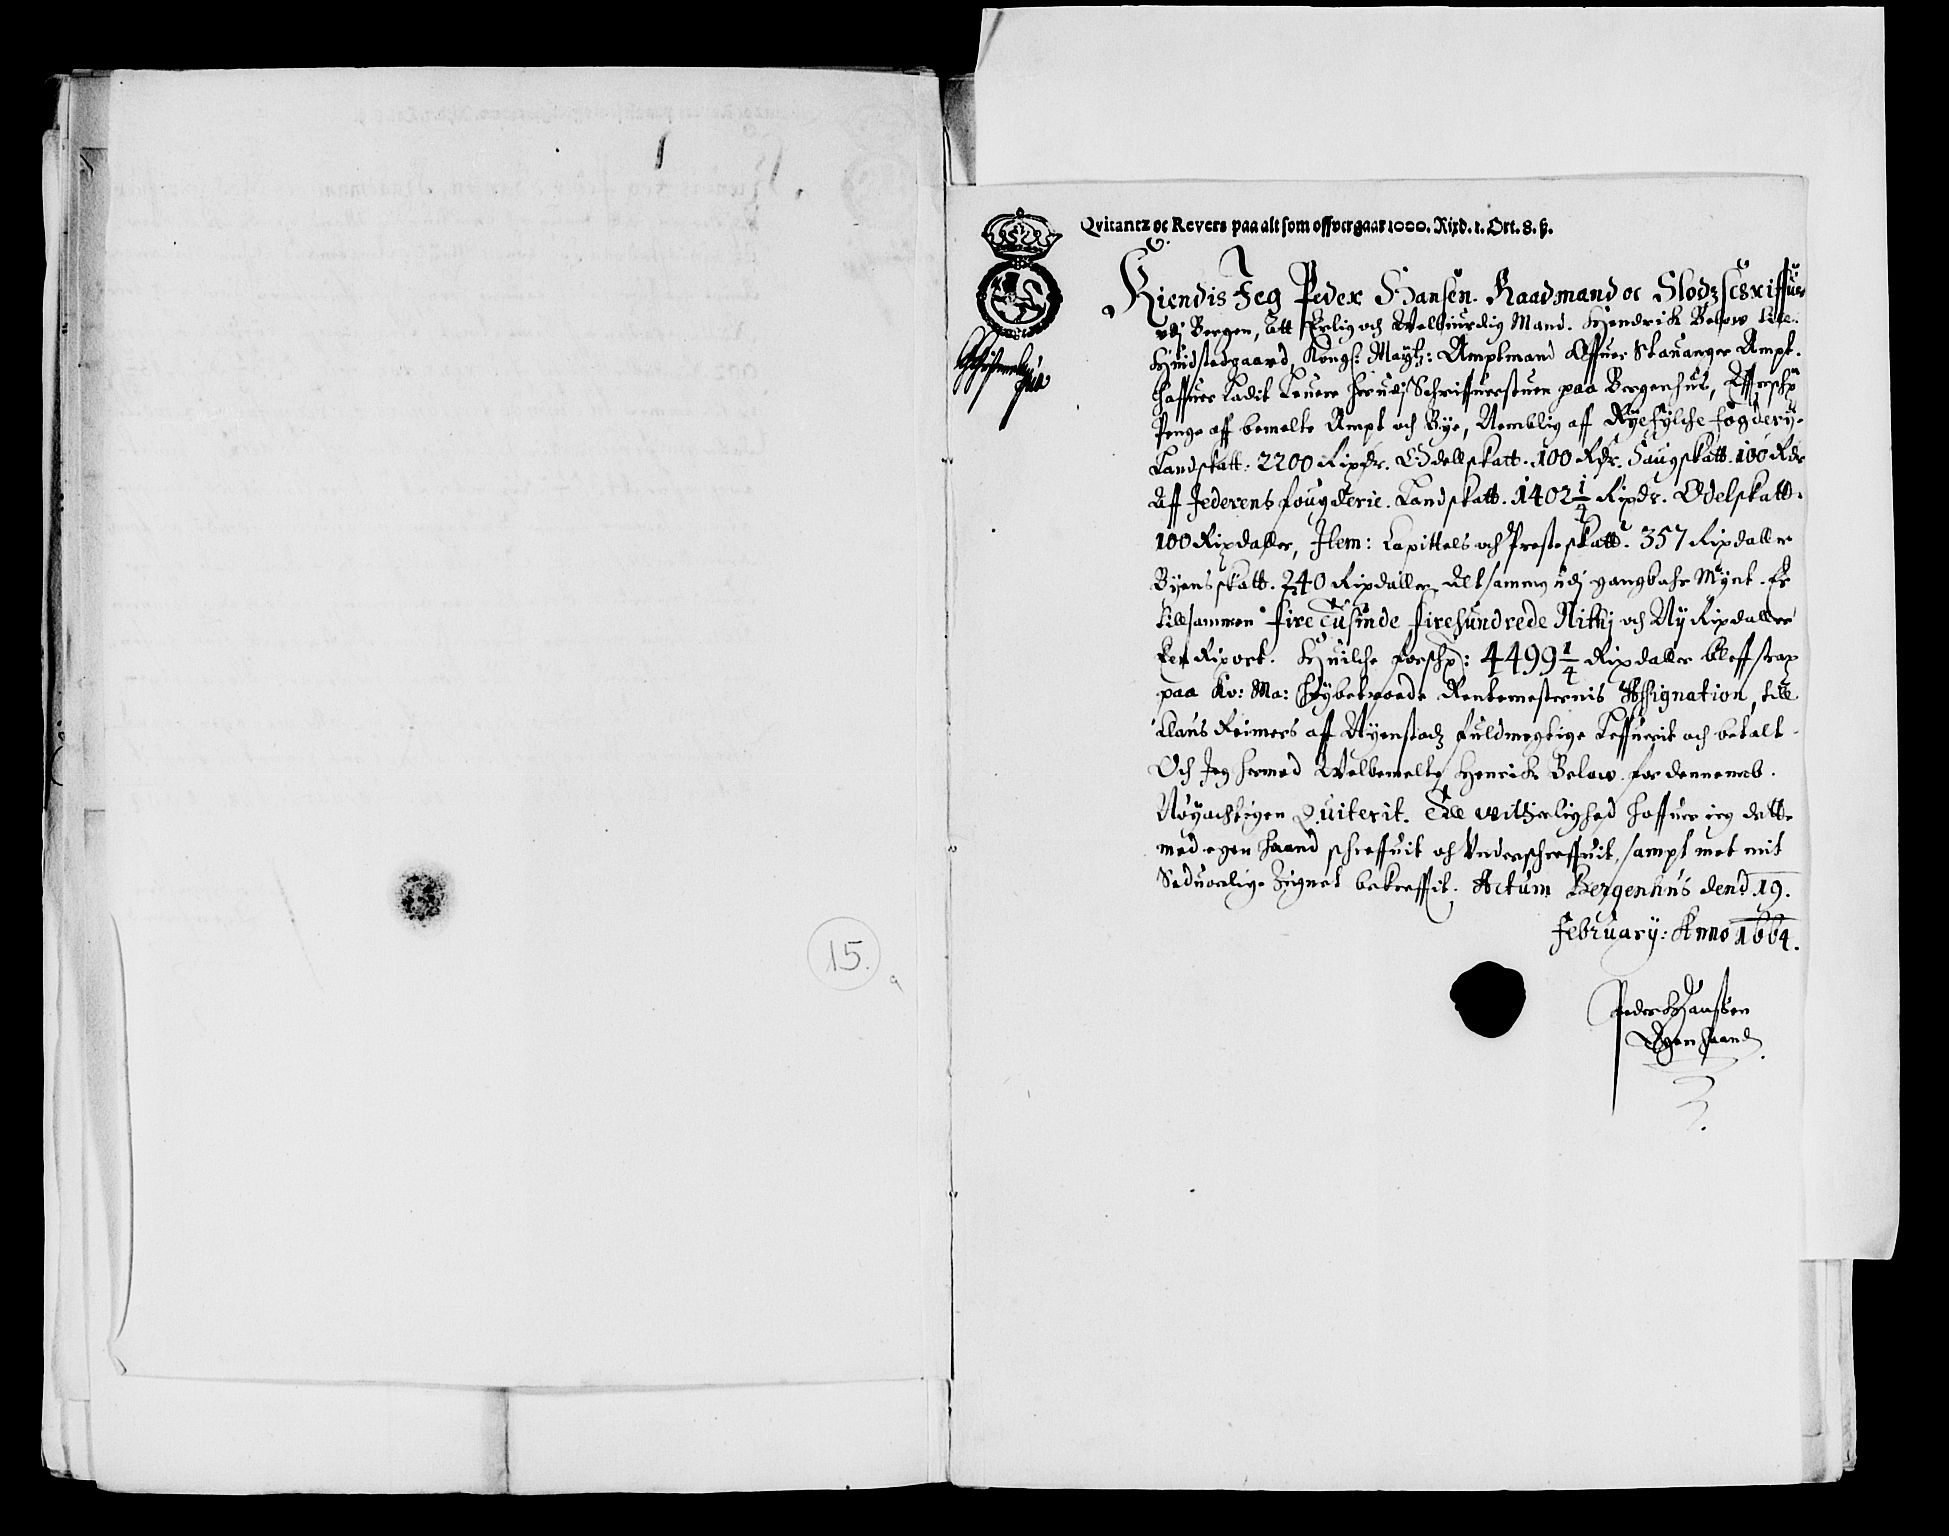 Qvitantz oc Revers paa alt som offvergaar 1000. Rixd. 1. Ort. 8. ß.
Kiendis Jeg Peder Hansen. Raadmand oc Slodzscriffuer
udj Bergen, Att Erlig och Velbiurdig Mand. Hendrich Below till.
Huidstedgaard, Kongl: Maytz: Amptmand Offuer Stauanger Ampt.
haffuer Ladit Leuere her udj Schriffuerstuen paa Bergenhus, Efferschne
Penge aff bemelte Ampt och Bye, Nemblig aff Ryefylche fogdery.
Landskatt. 2200 Rixdr. Odellskatt. 100 Rdr. Saugskatt. 100 Rdr
Aff Jederens fougderie. Landskatt. 1402 1/4 Rixdr. Odelskatt.
100 Rixdaller, Item: Capittels och Presteskatt. 357 Rixdaller
Byens skatt. 240 Rixdaller, Alt sammen udj gangbahr Mynt. Er
tillsammen fire Tusinde firehundrede Nithj och Nij Rixdaller
een Rixort. Huilche forschne: 4499 1/4 Rixdaller bleff strax
paa Ko: Ma: høybetroede Rentemesternis Assignation, till
Claus Reimers aff Nyenstadz fuldmegtige Leffuerit och betalt.
Och Jeg hermed Velbemelte Henrich Below. for dennem
Nøyachtigen Quiterit. Till vitterlighed haffuer ieg dette
med egen haand schreffuit och Underschreffuit, sampt met mit
Seduanlige Zignet bekreffit. Actum Bergenhus dend 19.
February: Anno 1664.
Peder Hanssen
Egen haand
15.